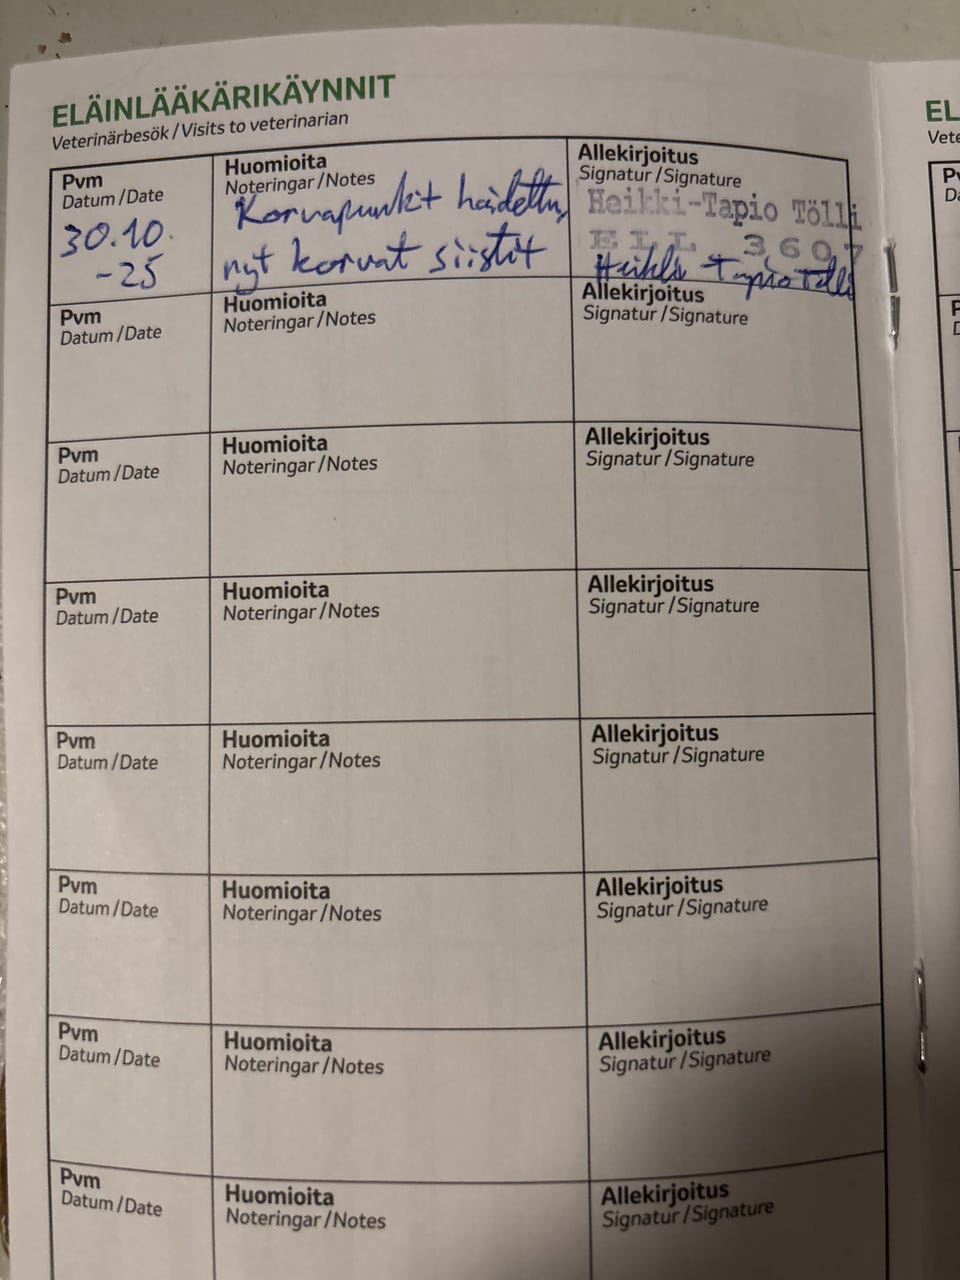 ELÄINLÄÄKÄRIKÄYNNIT
Veterinärbesök / Visits to veterinarian
Pvm
Datum / Date
30.10.
-25
Huomioita
Noteringar / Notes
Korvapunkit häädetty,
nyt korvat siistit
Allekirjoitus
Signatur / Signature
Heikki-Tapio Tölli
ELL 3607
Heikki Tapio Tölli
Pvm
Datum / Date
Huomioita
Noteringar / Notes
Allekirjoitus
Signatur / Signature
Pvm
Datum / Date
Huomioita
Noteringar / Notes
Allekirjoitus
Signatur / Signature
Pvm
Datum / Date
Huomioita
Noteringar / Notes
Allekirjoitus
Signatur / Signature
Pvm
Datum / Date
Huomioita
Noteringar / Notes
Allekirjoitus
Signatur / Signature
Pvm
Datum / Date
Huomioita
Noteringar / Notes
Allekirjoitus
Signatur / Signature
Pvm
Datum / Date
Huomioita
Noteringar / Notes
Allekirjoitus
Signatur / Signature
Pvm
Datum / Date
Huomioita
Noteringar / Notes
Allekirjoitus
Signatur / Signature
EL
Vete